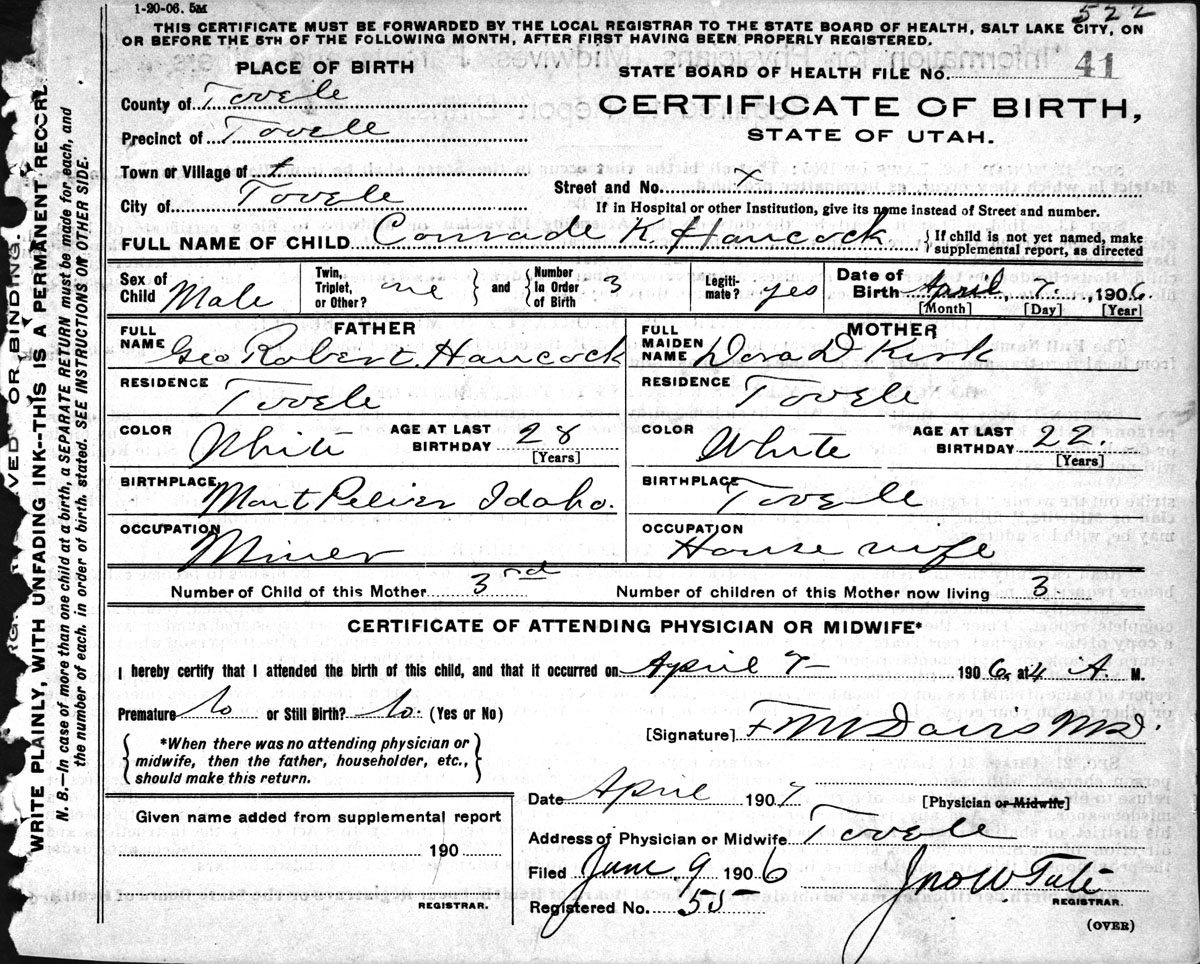 1-20-06. 5M
522
THIS CERTIFICATE MUST BE FORWARDED BY THE LOCAL REGISTRAR TO THE STATE BOARD OF HEALTH, SALT LAKE CITY, ON
OR BEFORE THE 5TH OF THE FOLLOWING MONTH, AFTER FIRST HAVING BEEN PROPERLY REGISTERED.
PLACE OF BIRTH
County of Tooele
Precinct of Tooele
Town or Village of
City of Tooele
STATE BOARD OF HEALTH FILE NO. 41
CERTIFICATE OF BIRTH,
STATE OF UTAH.
Street and No. x
If in Hospital or other Institution, give its name instead of Street and number.
FULL NAME OF CHILD Conrade K. Hancock
{If child is not yet named, make
supplemental report, as directed
Sex of Child Male
Twin, Triplet, or Other? one
and
Number In Order of Birth 3
Legiti-mate? yes
Date of Birth April 7 1906
[Month] [Day] [Year]
FATHER
FULL NAME Geo Robert. Hancock
RESIDENCE Tooele
COLOR White AGE AT LAST BIRTHDAY 28
[Years]
BIRTHPLACE Mont Pelier Idaho.
OCCUPATION Miner
MOTHER
FULL MAIDEN NAME Dora D Kirk
RESIDENCE Tooele
COLOR White AGE AT LAST BIRTHDAY 22.
[Years]
BIRTHPLACE Tooele
OCCUPATION House wife
Number of Child of this Mother 3rd Number of children of this Mother now living 3
CERTIFICATE OF ATTENDING PHYSICIAN OR MIDWIFE*
I hereby certify that I attended the birth of this child, and that it occurred on April 7 1906, at 4 A. M.
Premature No or Still Birth? No. (Yes or No)
[Signature] F M Davis MD.
{*When there was no attending physician or
midwife, then the father, householder, etc.,
should make this return.}
Date April 1907
[Physician or Midwife]
Given name added from supplemental report
190
REGISTRAR.
Address of Physician or Midwife Tooele
Filed June 9 1906
Jno W Tate
REGISTRAR.
Registered No. 55
(OVER)
WRITE PLAINLY, WITH UNFADING INK--THIS IS A PERMANENT RECORD.
N. B.--In case of more than one child at a birth, a SEPARATE RETURN must be made for each, and
the number of each, in order of birth stated. SEE INSTRUCTIONS ON OTHER SIDE.